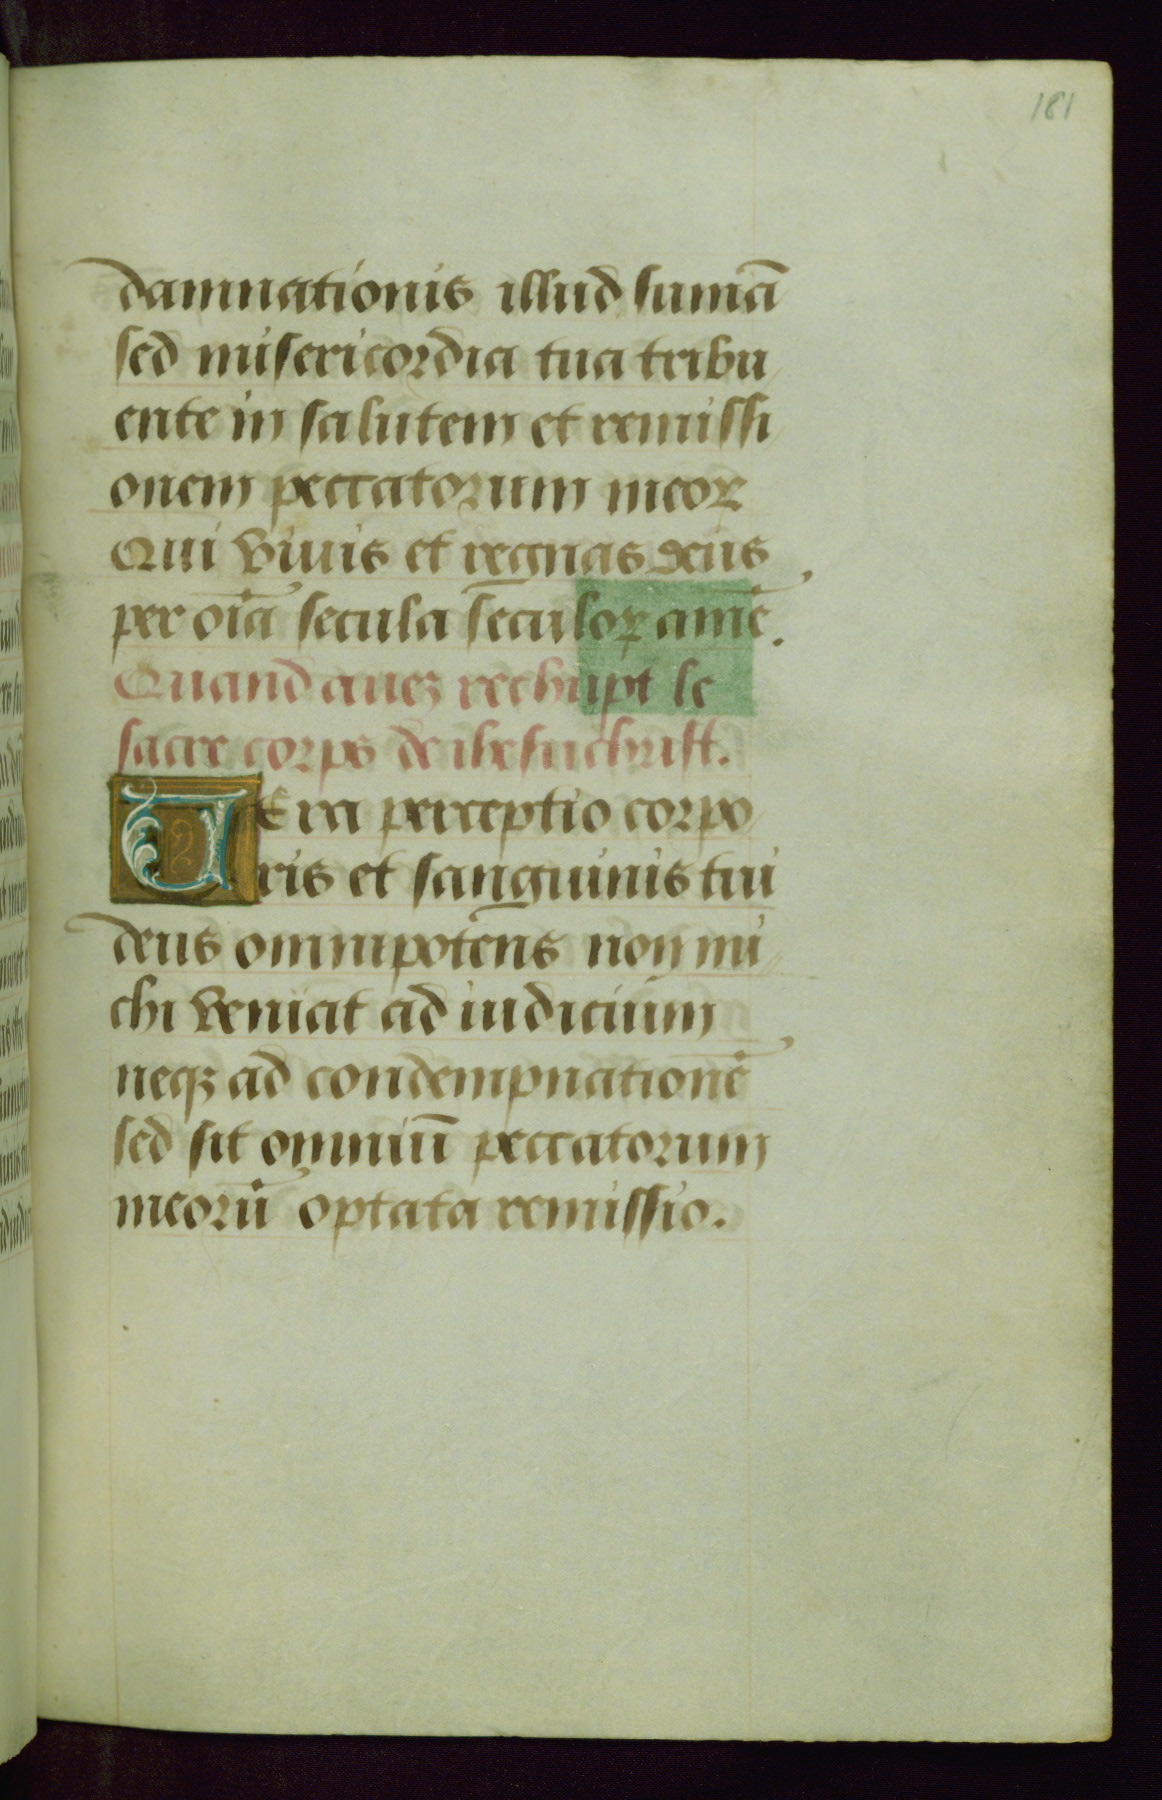 181
damnationis illud sumā
sed misericordia tua tribu
ente in salutem et remissi
onem peccatorum meoꝝ
Qui viuis et regnas deus
per oīa secula seculoꝝ amē.
Quand auez rechupt le
sacre corps de ihesuchrist.
VEra perceptio corpo
ris et sanguinis tui
deus omnipotens non mi
chi veniat ad iudicium
neqꝫ ad condempnationē
sed sit omniū peccatorum
meorū optata remissio.